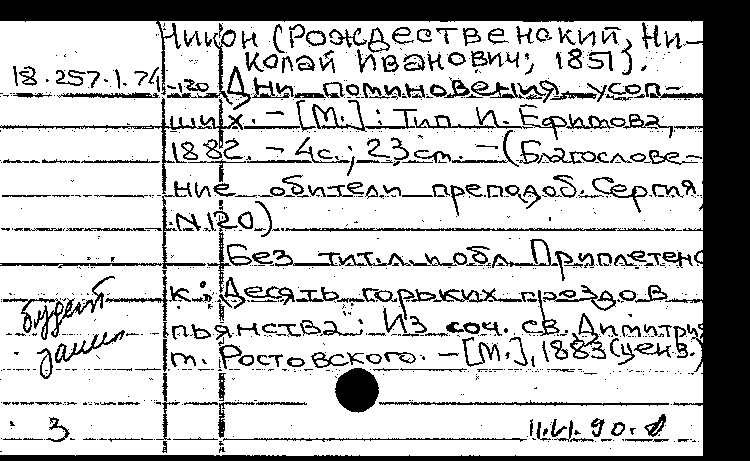 Никон (Рождественский, Ни-
колай Иванович; 1851).
18.257.1.74 -120 Дни поминовения усоп-
ших. – [М.] : Тип. И. Ефимова,
1882. – 4с.; 23см. – (Благослове-
ние обители преподоб. Сергия;
N120)
Без тит.л. и обл. Приплетено
к: Десять горьких гроздов
пьянства : Из соч. св. Димитрия
м. Ростовского. – [М.], 1883 (ценз.)
будет
3